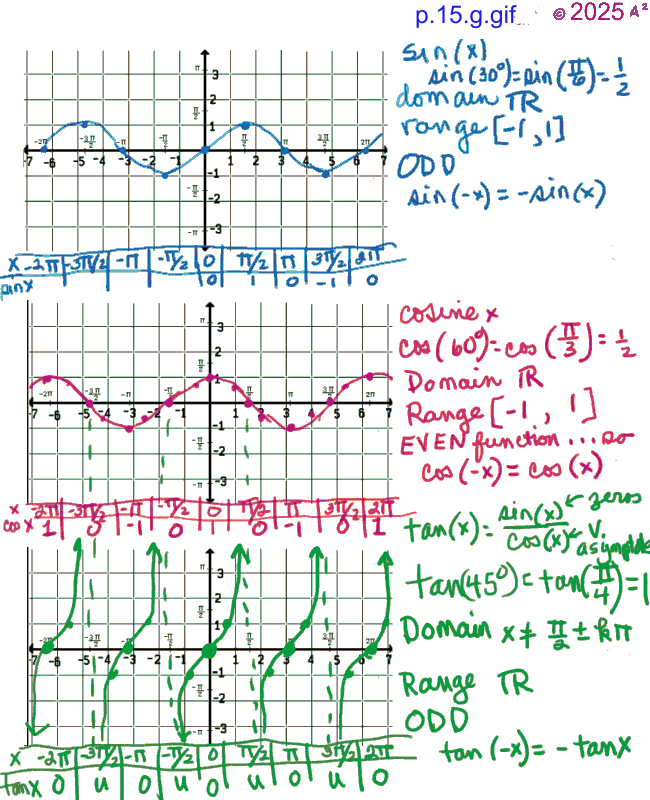 p.15.g.gif © 2025 A²
sin(x)
sin(30°)=sin(π/6)=1/2
domain ℝ
range [-1, 1]
ODD
sin(-x) = -sin(x)
x -2π -3π/2 -π -π/2 0 π/2 π 3π/2 2π
sin x 0 1 0 -1 0
cosine x
cos(60°)=cos(π/3)=1/2
Domain ℝ
Range [-1, 1]
EVEN function...so
cos(-x) = cos(x)
x -2π -3π/2 -π -π/2 0 π/2 π 3π/2 2π
cos x 1 0 -1 0 1 0 -1 0 1
tan(x) = sin(x)/cos(x) ← zeros
← V.
asymptote
tan(45°) = tan(π/4) = 1
Domain x ≠ π/2 ± kπ
Range ℝ
ODD
tan(-x) = -tan x
x -2π -3π/2 -π -π/2 0 π/2 π 3π/2 2π
tan x 0 u 0 u 0 u 0 u 0